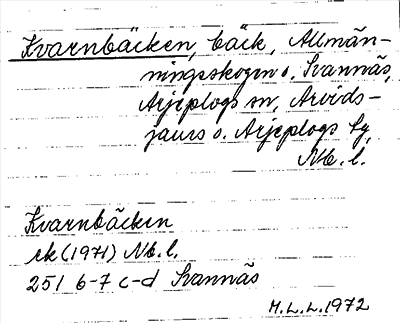 Kvarnbäcken, bäck, Allmän-
ningsskogen o. Svannäs,
Arjeplogs sn, Arvids-
jaurs o. Arjeplogs tg,
Nb. l.
Kvarnbäcken
rk (1971) Nb. l.
251 6-7 c-d Svannäs
M.L.L. 1972